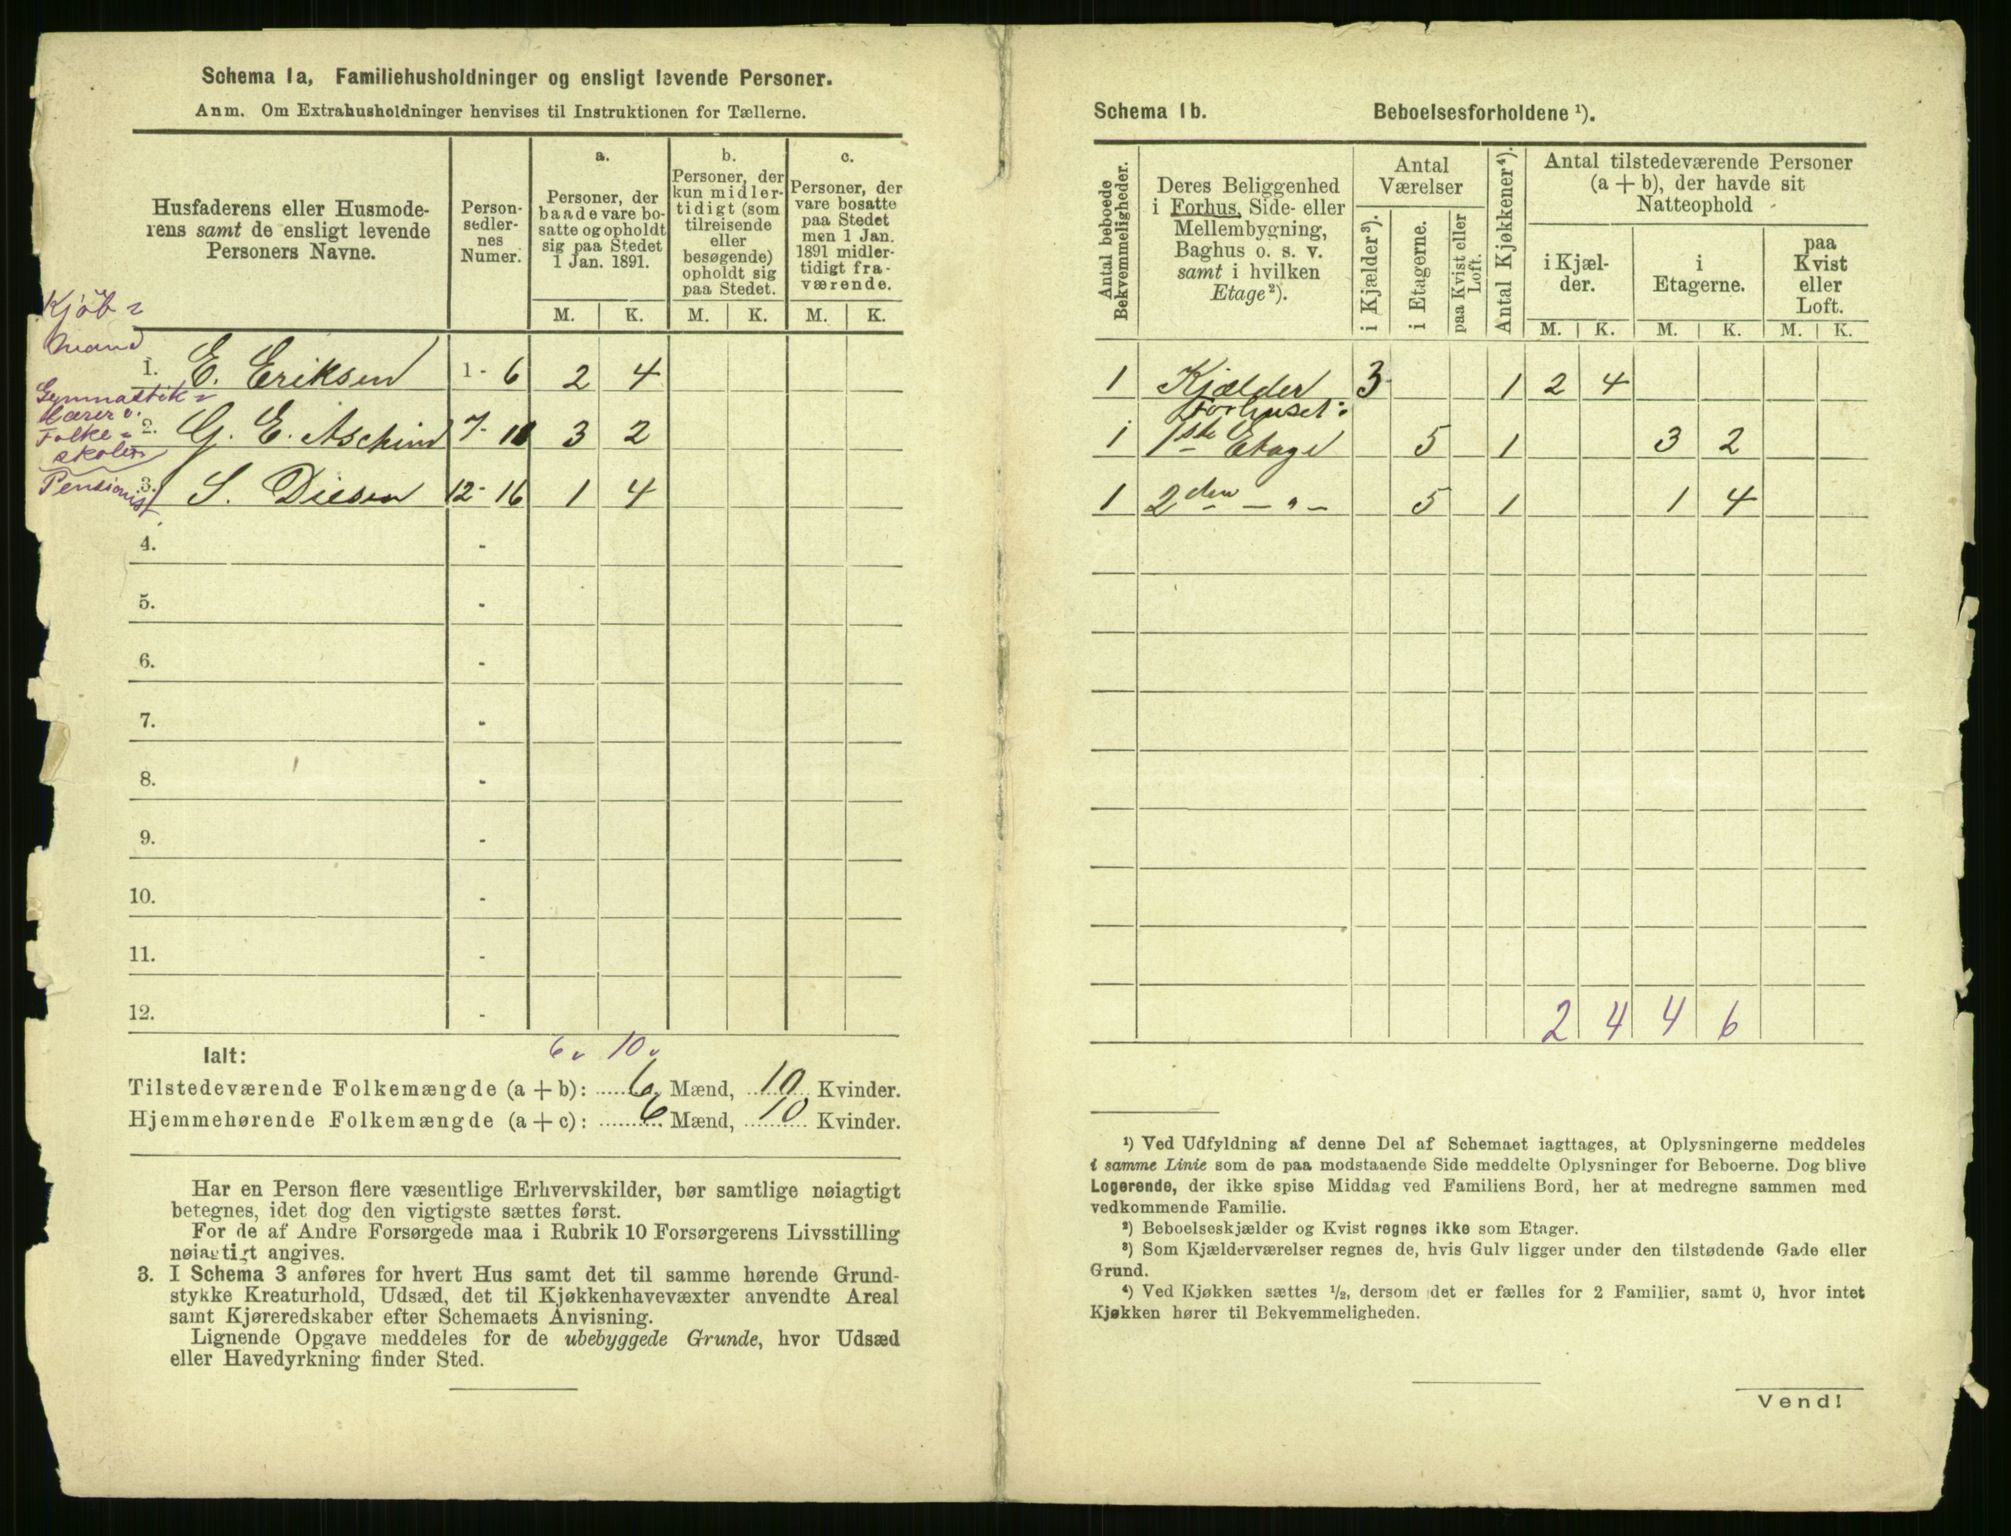 Schema 1a, Familiehusholdninger og ensligt levende Personer.
Anm. Om Extrahusholdninger henvises til Instruktionen for Tællerne.
Husfaderens eller Husmode-
rens samt de ensligt levende
Personers Navne.
Person-
sedler-
nes
Numer.
a.
Personer, der
baade vare bo-
satte og opholdt
sig paa Stedet
1 Jan. 1891.
b.
Personer, der
kun midler-
tidigt (som
tilreisende
eller
besøgende)
opholdt sig
paa Stedet.
c.
Personer, der
vare bosatte
paa Stedet
men 1 Jan.
1891 midler-
tidigt fra-
værende.
M. K. M. K. M. K.
Kjøb=
mand
1. E. Eriksen 1 - 6 2 4
Gymnastik=
lærer v.
Folke=
skolen
2. G. E. 7 - 11 3 2
Pensionist
3. S. Diesen 12 - 16 1 4
4. -
5. -
6. -
7. -
8. -
9. -
10. -
11. -
12. -
6 10
Ialt:
Tilstedeværende Folkemængde (a + b): 6 Mænd, 10 Kvinder.
Hjemmehørende Folkemængde (a + c): 6 Mænd, 10 Kvinder.
Har en Person flere væsentlige Erhvervskilder, bør samtlige nøiagtigt
betegnes, idet dog den vigtigste sættes først.
For de af Andre Forsørgede maa i Rubrik 10 Forsørgerens Livsstilling
nøiagtigt angives.
3. I Schema 3 anføres for hvert Hus samt det til samme hørende Grund-
stykke Kreaturhold, Udsæd, det til Kjøkkenhavevæxter anvendte Areal
samt Kjøreredskaber efter Schemaets Anvisning.
Lignende Opgave meddeles for de ubebyggede Grunde, hvor Udsæd
eller Havedyrkning finder Sted.
Schema 1b. Beboelsesforholdene ¹).
Antal beboede
Bekvemmeligheder.
Deres Beliggenhed
i Forhus, Side- eller
Mellembygning,
Baghus o. s. v.
samt i hvilken
Etage²).
Antal
Værelser
i Kjælder³).
i Etagerne.
paa Kvist eller
Loft.
Antal Kjøkkener⁴).
Antal tilstedeværende Personer
(a + b), der havde sit
Natteophold
i Kjæl-
der.
i
Etagerne.
paa
Kvist
eller
Loft.
M. K. M. K. M. K.
1 Kjælder 3 1 2 4
Forhuset:
1 1ste Etage 5 1 3 2
1 2den — " — 5 1 1 4
2 4 4 6
¹) Ved Udfyldning af denne Del af Schemaet iagttages, at Oplysningerne meddeles
i samme Linie som de paa modstaaende Side meddelte Oplysninger for Beboerne. Dog blive
Logerende, der ikke spise Middag ved Familiens Bord, her at medregne sammen med
vedkommende Familie.
²) Beboelseskjælder og Kvist regnes ikke som Etager.
³) Som Kjælderværelser regnes de, hvis Gulv ligger under den tilstødende Gade eller
Grund.
⁴) Ved Kjøkken sættes ½, dersom det er fælles for 2 Familier, samt 0, hvor intet
Kjøkken hører til Bekvemmeligheden.
Vend!